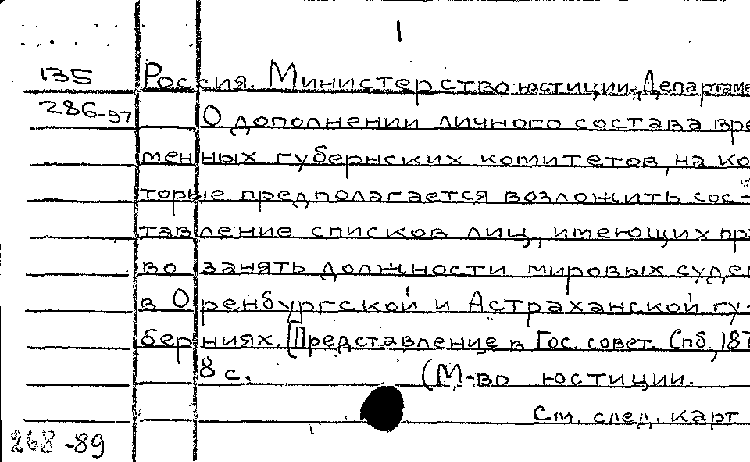 1
135 Россия. Министерство юстиции. Департаме
286-97 О дополнении личного состава вре
менных губернских комитетов, на ко
торые предполагается возложить сос-
тавление списков лиц, имеющих пра
во занять должности мировых судей
в Оренбургской и Астраханской гу-
берниях. [Представление в Гос. совет. Спб, 187
8 с. (М-во юстиции.
См. след. карт
268-89